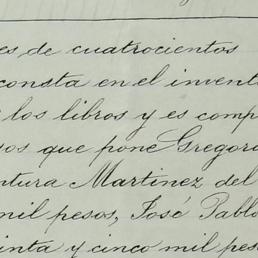 es de cuatrocientos
consta en el invent
los libros y es comp
sos que pone Gregor
ntura Martinez del
mil pesos, José Pablo
inta y cinco mil pes